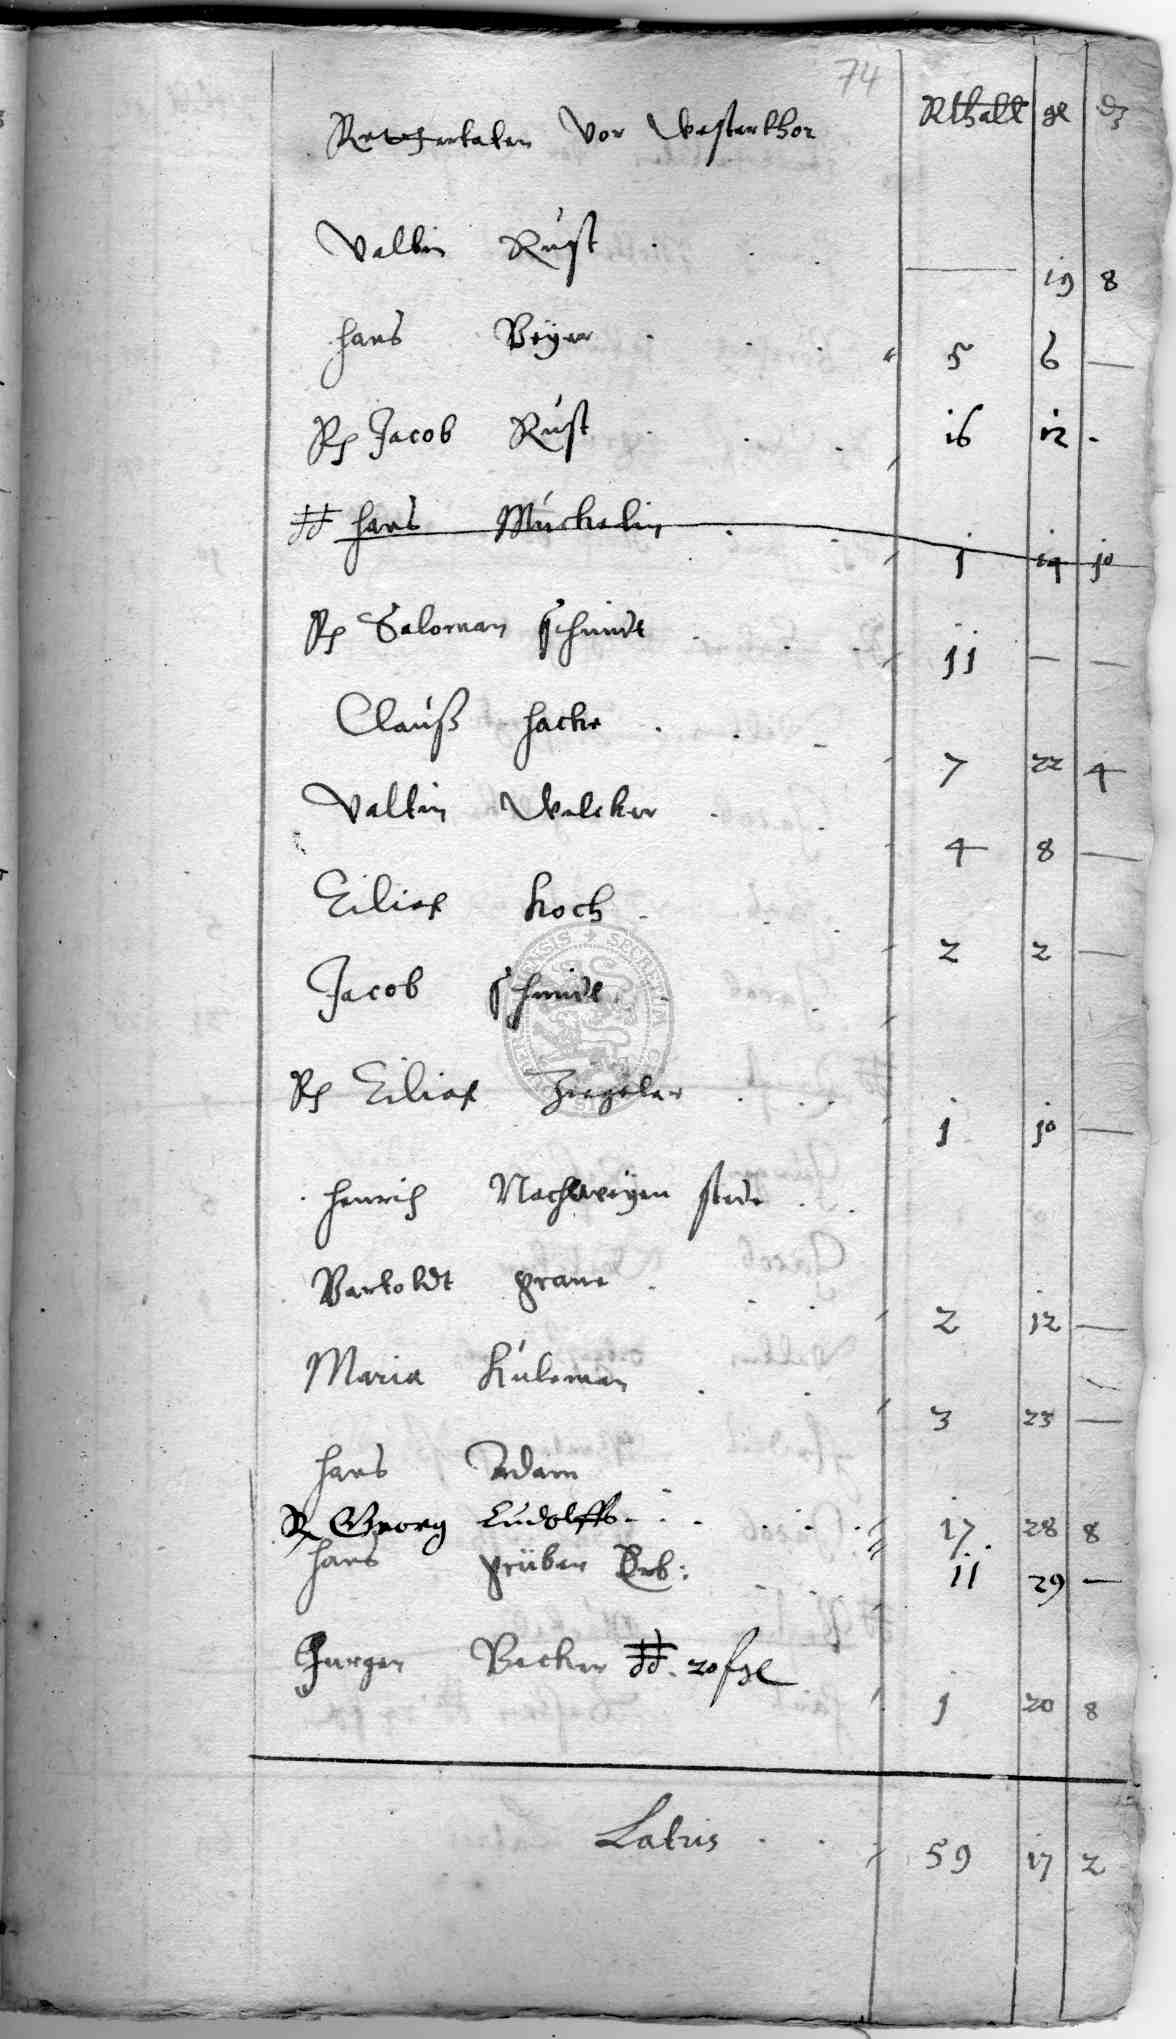 74
Rthall gl d
Vor Westerthor
Valtin Rust — 19 8
hans Beyer 5 6 —
Rp Jacob Rust 16 12 -
hans Muchelin 1 14 10
Rp Saloman schmidt 11 — —
Clauß hacke 7 22 4
Valtin Welcker 4 8 —
Eilias Koch 2 2 —
Jacob schmidt
Rp Eilias Ziegeler 1 10 —
henrich Nachtweyen stede
Bartoldt grane 2 12 —
Maria Kuleman 3 23 —
hans Adam
R Georg Ludolffs 17 28 8
hans grüber Erb: 11 29 —
Jurgen Becker 20 fgl 1 20 8
Latris 59 17 2